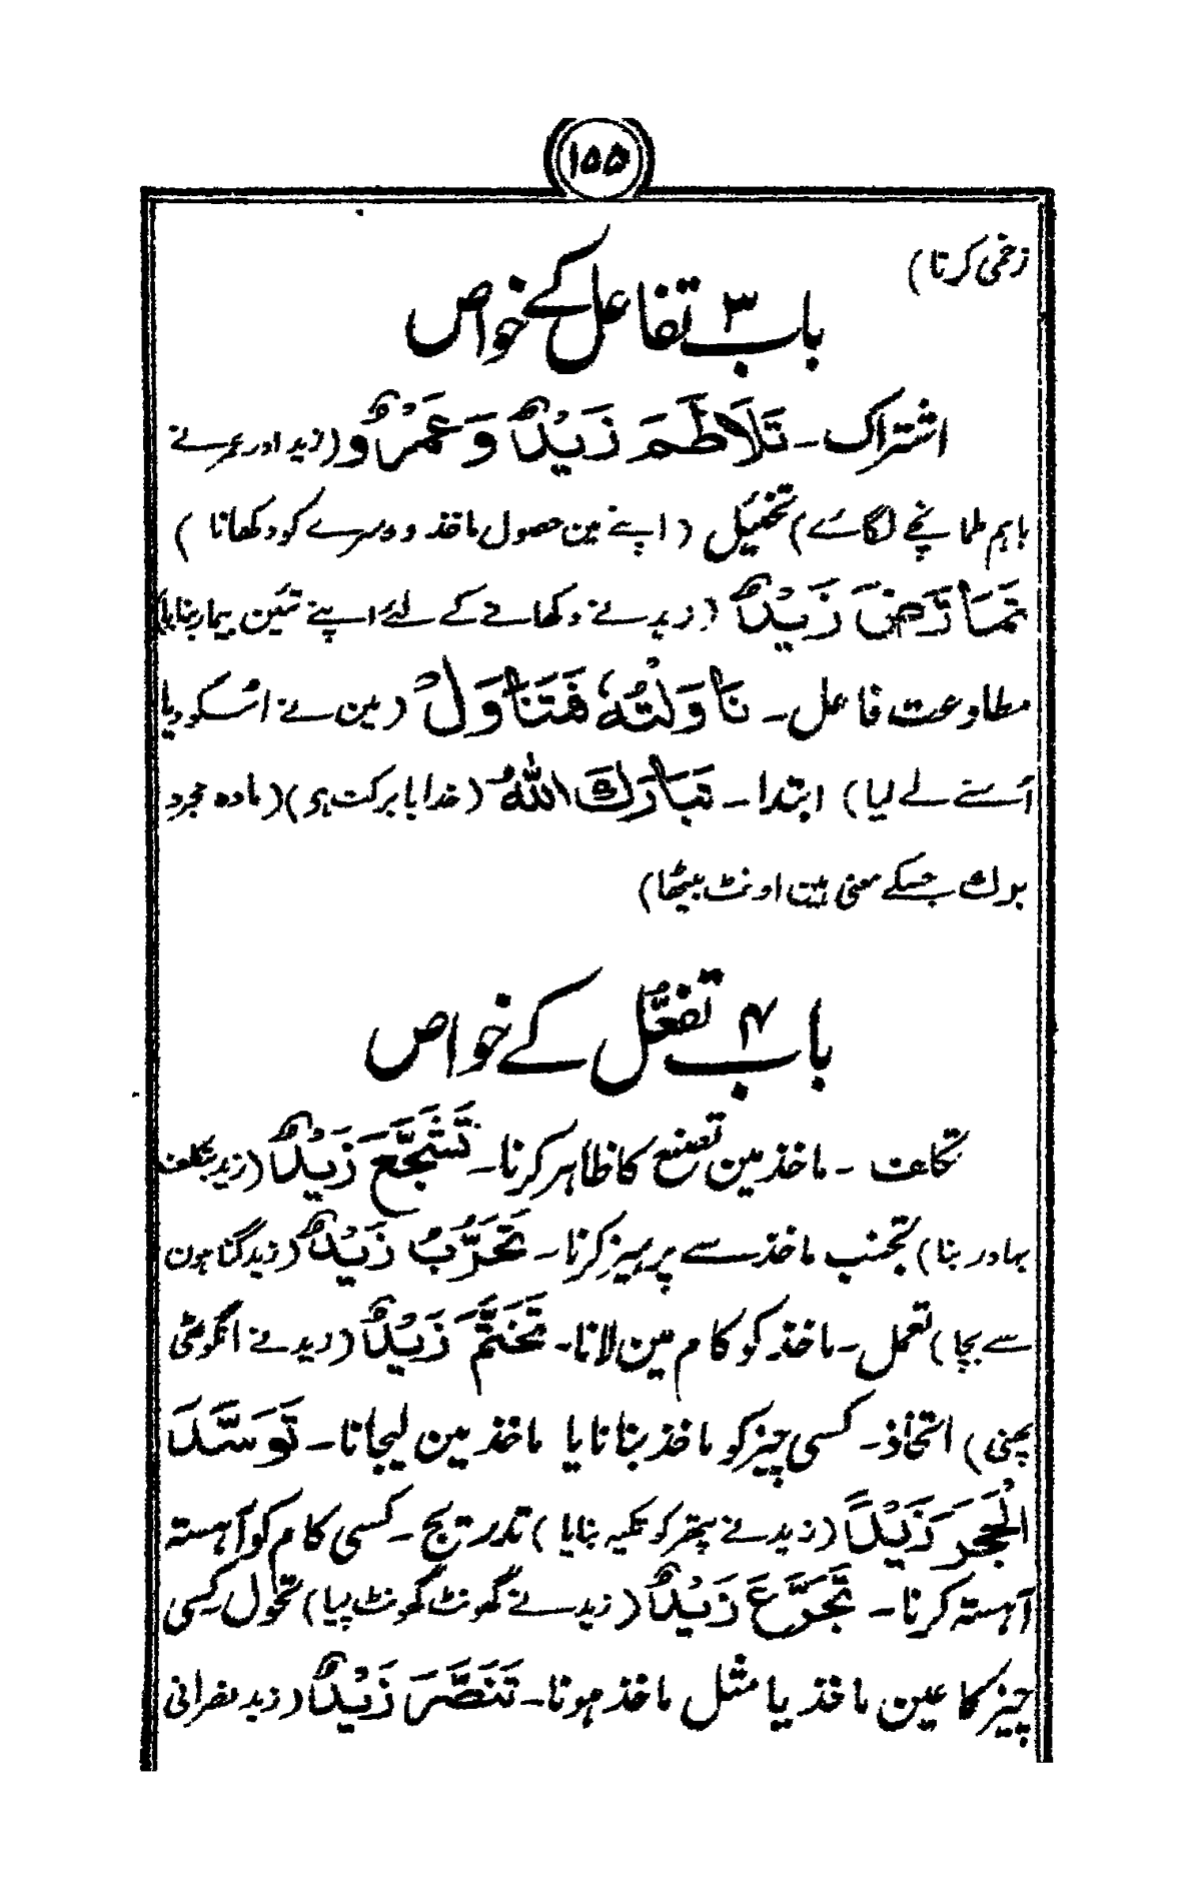 ۱۵۵
زخمی کرنا)
باب ۳ تفاعل کے خواص
اشتراک ۔ تَلَاطَمَ زَيْدٌ وَعَمْرٌو (زید اور عمر نے
باہم طمانچے لگائے) تخئیل (اپنے مین حصول ماخذ دوسرے کو دکھانا)
تَمَارَضَ زَيْدٌ (زید نے دکھانے کے لئے اپنے تئین بیمار بنایا)
مطاوعت فاعل ۔ نَاوَلْتُهُ فَتَنَاوَلَ (مین نے اسکو دیا
اُسنے لے لیا) ابتدا ۔ تَبَارَكَ اللهُ (خدا بابرکت ہی) (مادہ مجرد
برك جسکے معنی ہین اونٹ بیٹھا)
باب ۴ تفعّل کے خواص
تکلف ۔ ماخذ مین تصنع کا ظاہر کرنا ۔ تَشَجَّعَ زَيْدٌ (زید بتکلف
بہادر بنا) تجنب ماخذ سے پرہیز کرنا ۔ تَحَرَّبُ زَيْدٌ (زید گناہون
سے بچا) تعمل ۔ ماخذ کو کام مین لانا ۔ تَخَتَّمَ زَيْدٌ (زید نے انگوٹھی
پہنی) اتخاذ ۔ کسی چیز کو ماخذ بنانا یا ماخذ مین لیجانا ۔ تَوَسَّدَ
الْحَجَرَ زَيْدٌ (زید نے پتھر کو تکیہ بنایا) تدریج ۔ کسی کام کو آہستہ
آہستہ کرنا ۔ تَجَرَّعَ زَيْدٌ (زید نے گھونٹ گھونٹ پیا) تحول کسی
چیز کا عین ماخذ یا مثل ماخذ ہونا ۔ تَنَصَّرَ زَيْدٌ (زید نصرانی